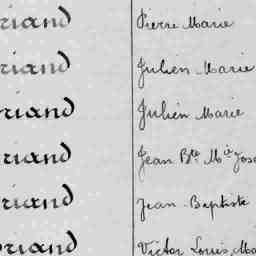 riand Pierre Marie
riand Julien Marie
riand Julien Marie
riand Jean Bte Mie Jose
riand Jean-Baptiste
riand Victor Louis Ma